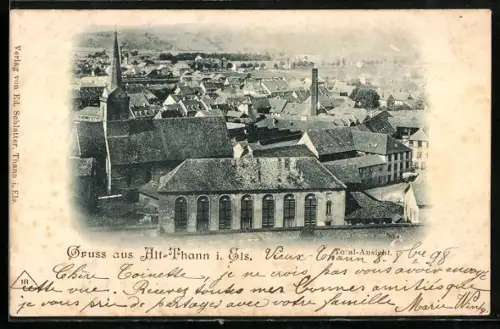 Verlag von Ed. Schlatter, Thann i. Els.
Gruss aus Alt-Thann i. Els.
Total-Ansicht.
Vieux-Thann 8. 98
Chère Toinette, je ne crois pas vous avoir envoyé
cette vue. Recevez toutes mes bonnes amitiés que
je vous prie de partager avec votre famille. Marie
18